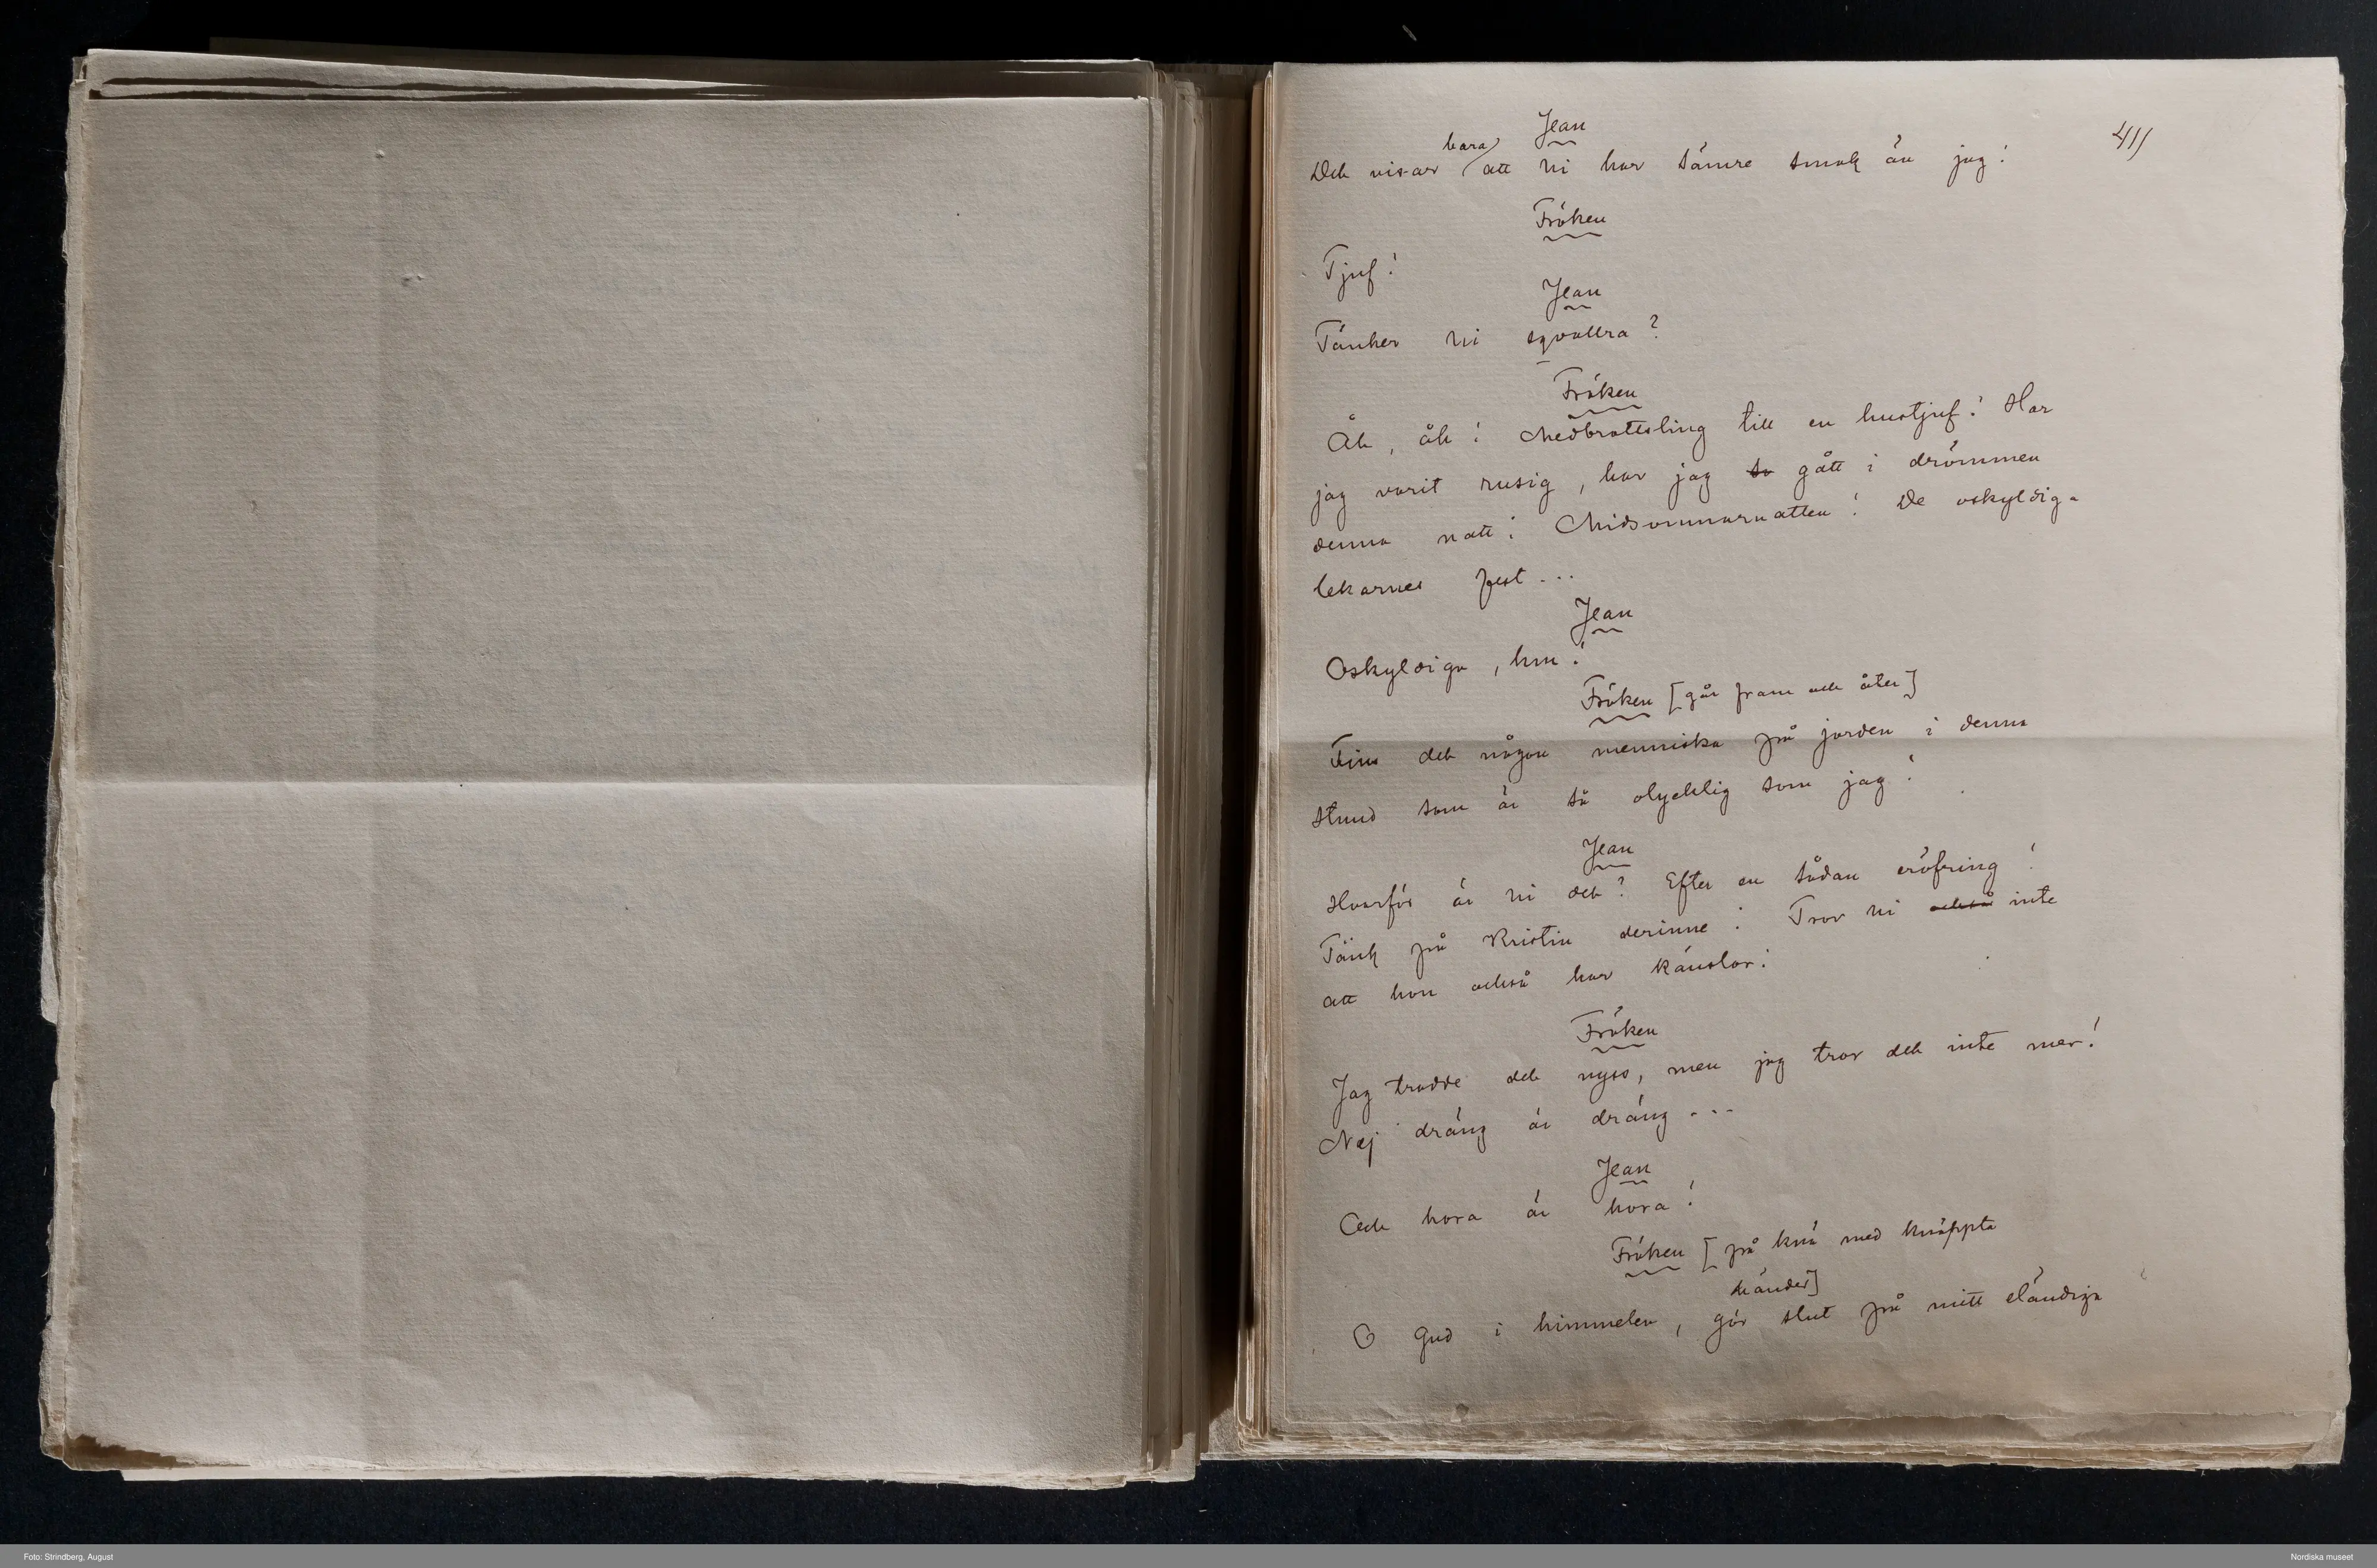 Jean
41)
bara
Det visar att ni har sämre smak än jag!
Fröken
Tjuf!
Jean
Tänker ni sqvallra?
Fröken
Åh, åh! Medbrottsling till en hustjuf! Har
jag varit rusig, har jag så gått i drömmen
denna natt! Midsommarnatten! De oskyldiga
lekarnes fest...
Jean
Oskyldiga, hm!
Fröken [går fram och åter]
Fins det någon menniska på jorden i denna
stund som är så olycklig som jag!
Jean
Hvarför är ni det? Efter en sådan eröfring!
Tänk på Kristin derinne! Tror ni också inte
att hon också har känslor!
Fröken
Jag trodde det nyss, men jag tror det inte mer!
Nej dräng är dräng...
Jean
Och hora är hora!
Fröken [på knä med knäppta
händer]
O Gud i himmelen, gör slut på mitt eländiga
Foto: Strindberg, August
Nordiska museet